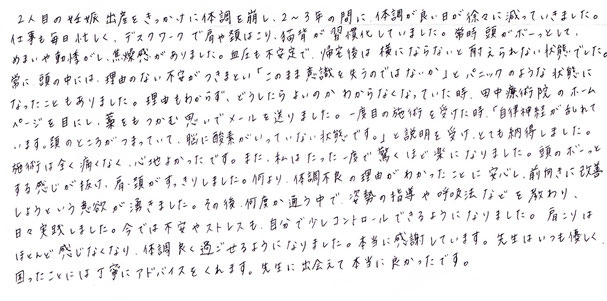 2人目の妊娠出産をきっかけに体調を崩し、2〜3年の間に、体調が良い日が徐々に減っていきました。
仕事も毎日忙しく、デスクワークで肩や頭はこり、猫背が習慣化していました。常時頭がボーっとして、
めまいや動悸がし、焦燥感がありました。血圧も不安定で、帰宅後は横にならないと耐えられない状態でした。
常に頭の中には、理由のない不安がつきまとい「このまま意識を失うのではないか」とパニックのような状態に
なったこともありました。理由もわからず、どうしたらよいのかわからなくなっていた時、田中療術院のホーム
ページを目にし、藁をもつかむ思いでメールを送りました。一度目の施術を受けた時、「自律神経が乱れて
います。頭のところがつまっていて、脳に酸素がいっていない状態です。」と説明を受け、とても納得しました。
施術は全く痛くなく、心地よかったです。また、私はたった一度で驚くほど楽になりました。頭のボーっと
する感じが抜け、肩・頭がすっきりしました。何より、体調不良の理由がわかったことに安心し、前向きに改善
しようという意欲が湧きました。その後、何度か通う中で、姿勢の指導や呼吸法などを教わり、
日々実践しました。今では不安やストレスも、自分で少しコントロールできるようになりました。肩こりは
ほとんど感じなくなり、体調良く過ごせるようになりました。本当に感謝しています。先生はいつも優しく、
困ったことには丁寧にアドバイスをくれます。先生に出会えて本当に良かったです。